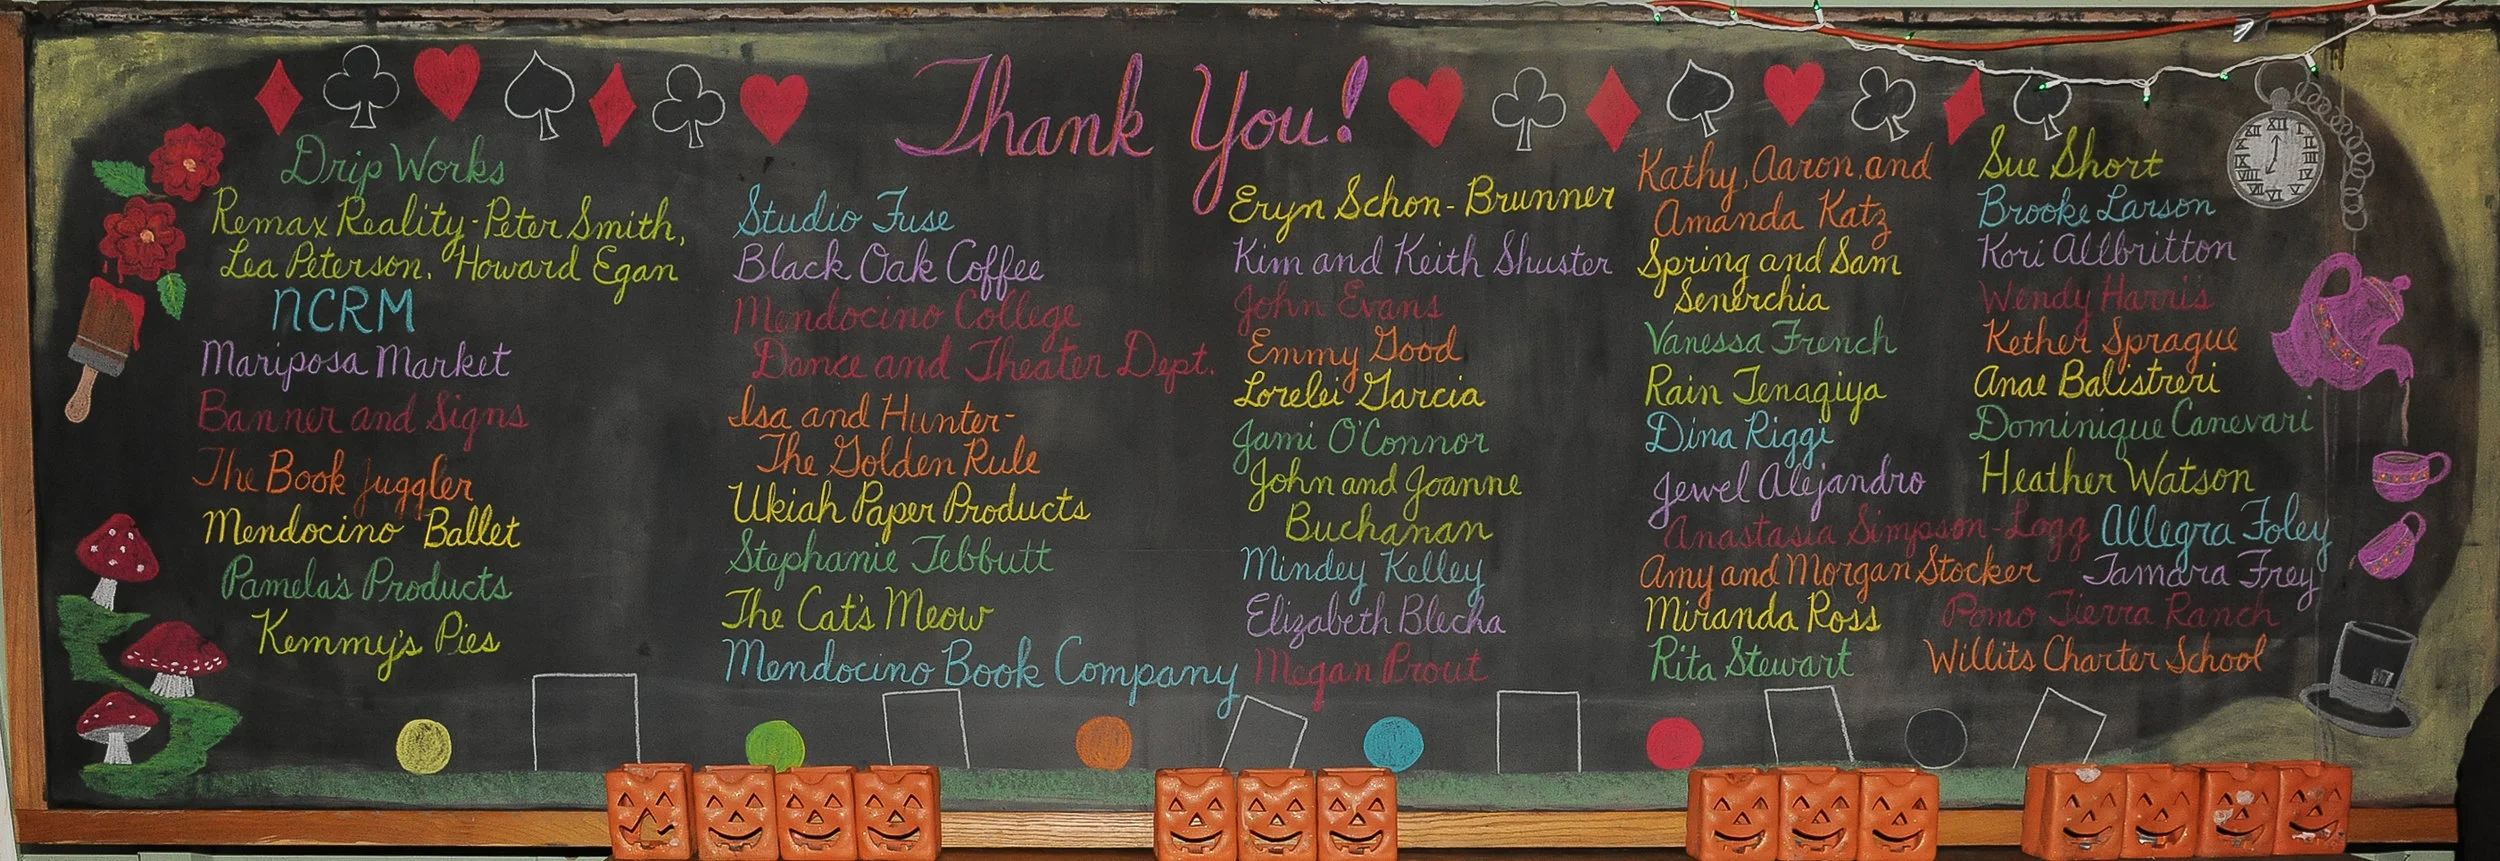 Thank You!
Drip Works
Remax Reality-Peter Smith,
Lea Peterson, Howard Egan
NCRM
Mariposa Market
Banner and Signs
The Book Juggler
Mendocino Ballet
Pamela's Products
Kemmy's Pies
Studio Fuse
Black Oak Coffee
Mendocino College
Dance and Theater Dept.
Isa and Hunter-
The Golden Rule
Ukiah Paper Products
Stephanie Tebbutt
The Cat's Meow
Mendocino Book Company
Eryn Schon-Brunner
Kim and Keith Shuster
John Evans
Emmy Good
Lorelei Garcia
Jami O'Connor
John and Joanne
Buchanan
Mindey Kelley
Elizabeth Blecha
Megan Prout
Kathy, Aaron, and
Amanda Katz
Spring and Sam
Senerchia
Vanessa French
Rain Tenaqiya
Dina Riggi
Jewel Alejandro
Anastasia Simpson-Logg
Amy and Morgan Stocker
Miranda Ross
Rita Stewart
Sue Short
Brooke Larson
Kori Allbritton
Wendy Harris
Kether Sprague
Anae Balistreri
Dominique Canevari
Heather Watson
Allegra Foley
Tamara Frey
Pomo Tierra Ranch
Willits Charter School